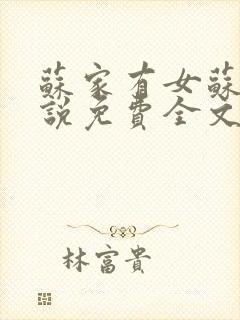 蘇家有女蘇
說免費全文
林富貴